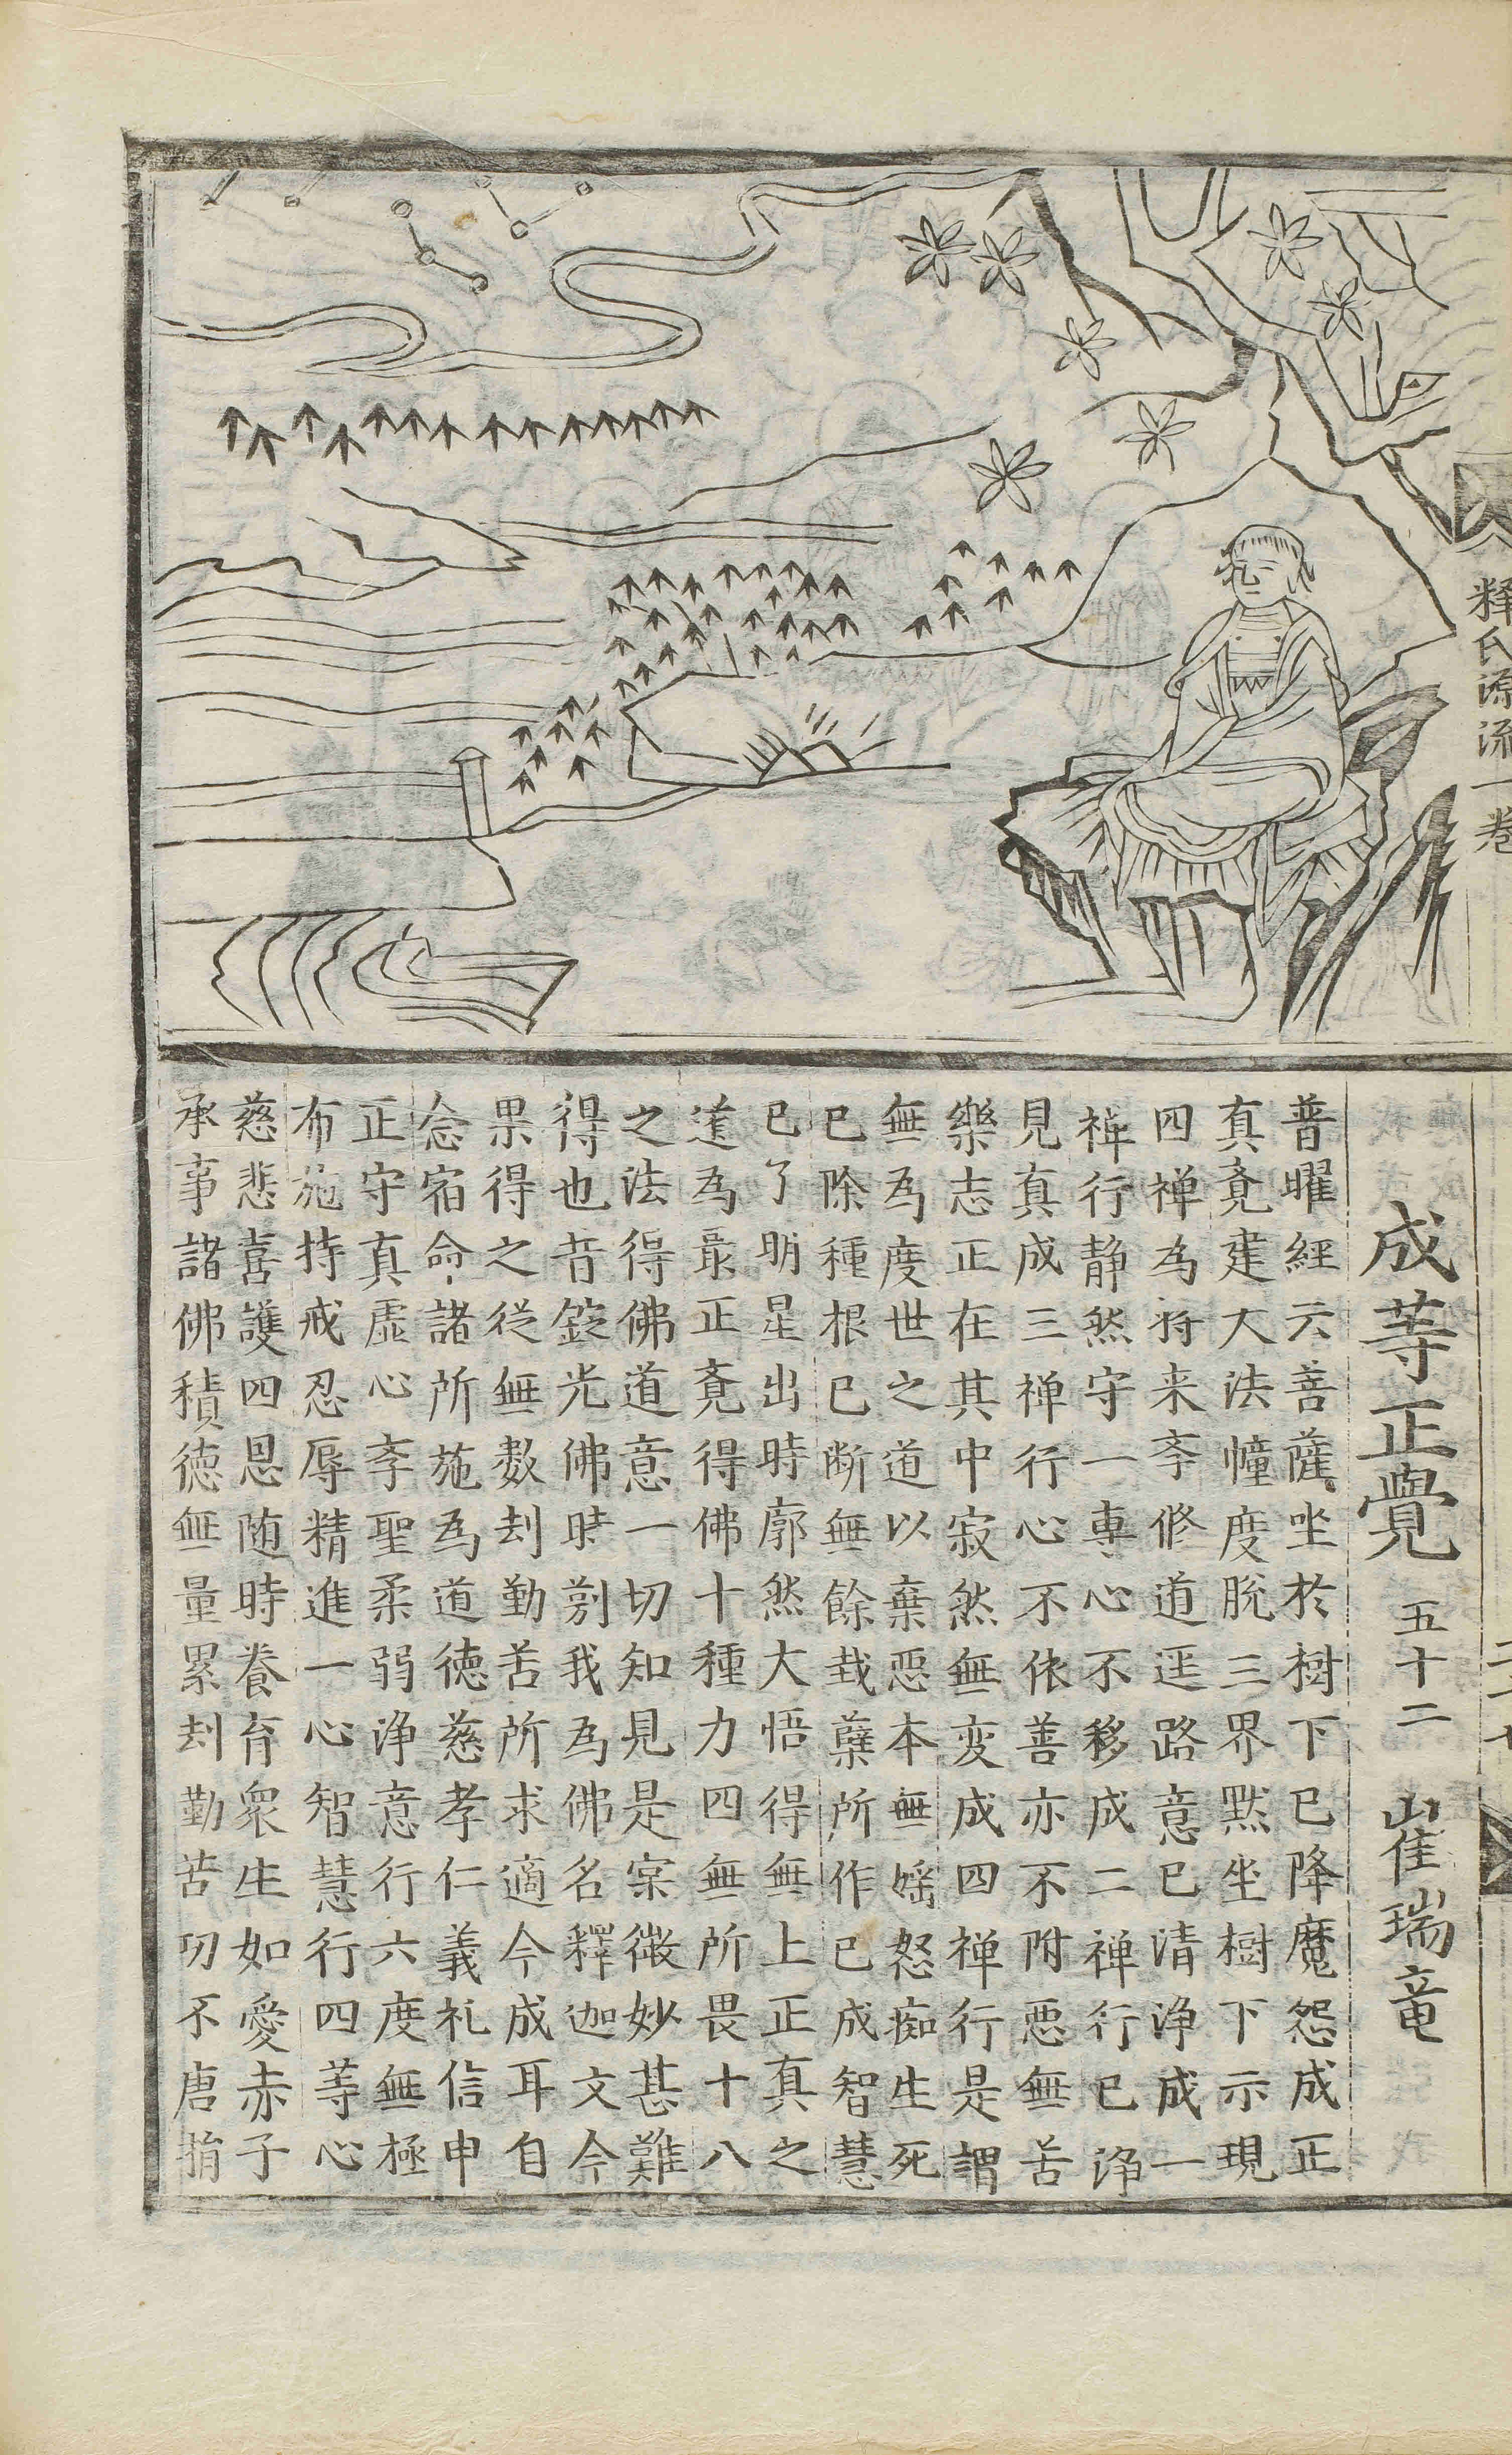 釋氏源流一卷
成等正覺 五十二 崔瑞竜
普曜經云善薩坐於樹下已降魔怨成正
真覔建大法幢度脫三界黙坐樹下示現
四禅為将来斈修道迳路意已清浄成一
禅行静然守一専心不移成二禅行已浄
見真成三禅行心不依善亦不附惡無苦
樂志正在其中寂然無变成四禅行是謂
無為度世之道以棄惡本無婬怒痴生死
已除種根已断無餘㘽蘖所作已成智慧
已了明星出時廓然大悟得無上正真之
道為最正覔得佛十種力四無所畏十八
之法得佛道意一切知見是冞微妙甚難
得也昔錠光佛時莂我為佛名釋迦文今
果得之従無数刦勤苦所求適今成耳自
念宿命諸所施為道徳慈孝仁義礼信申
正守真虛心斈聖柔弱浄意行六度無極
布施持戒忍辱精進一心智慧行四等心
慈悲喜護四恩随時養育衆生如愛赤子
承事諸佛積徳無量累刦勤苦功不唐捐